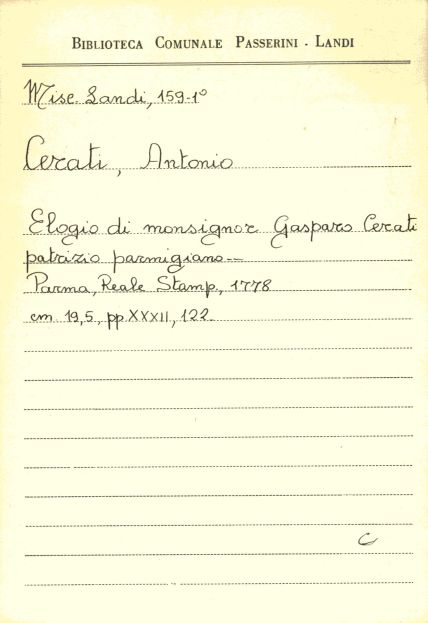 BIBLIOTECA COMUNALE PASSERINI - LANDI
Misc. Landi, 159-1°
Cerati, Antonio
Elogio di monsignor Gasparo Cerati
patrizio parmigiano--
Parma, Reale Stamp., 1778
cm. 19,5, pp XXXII, 122.
C